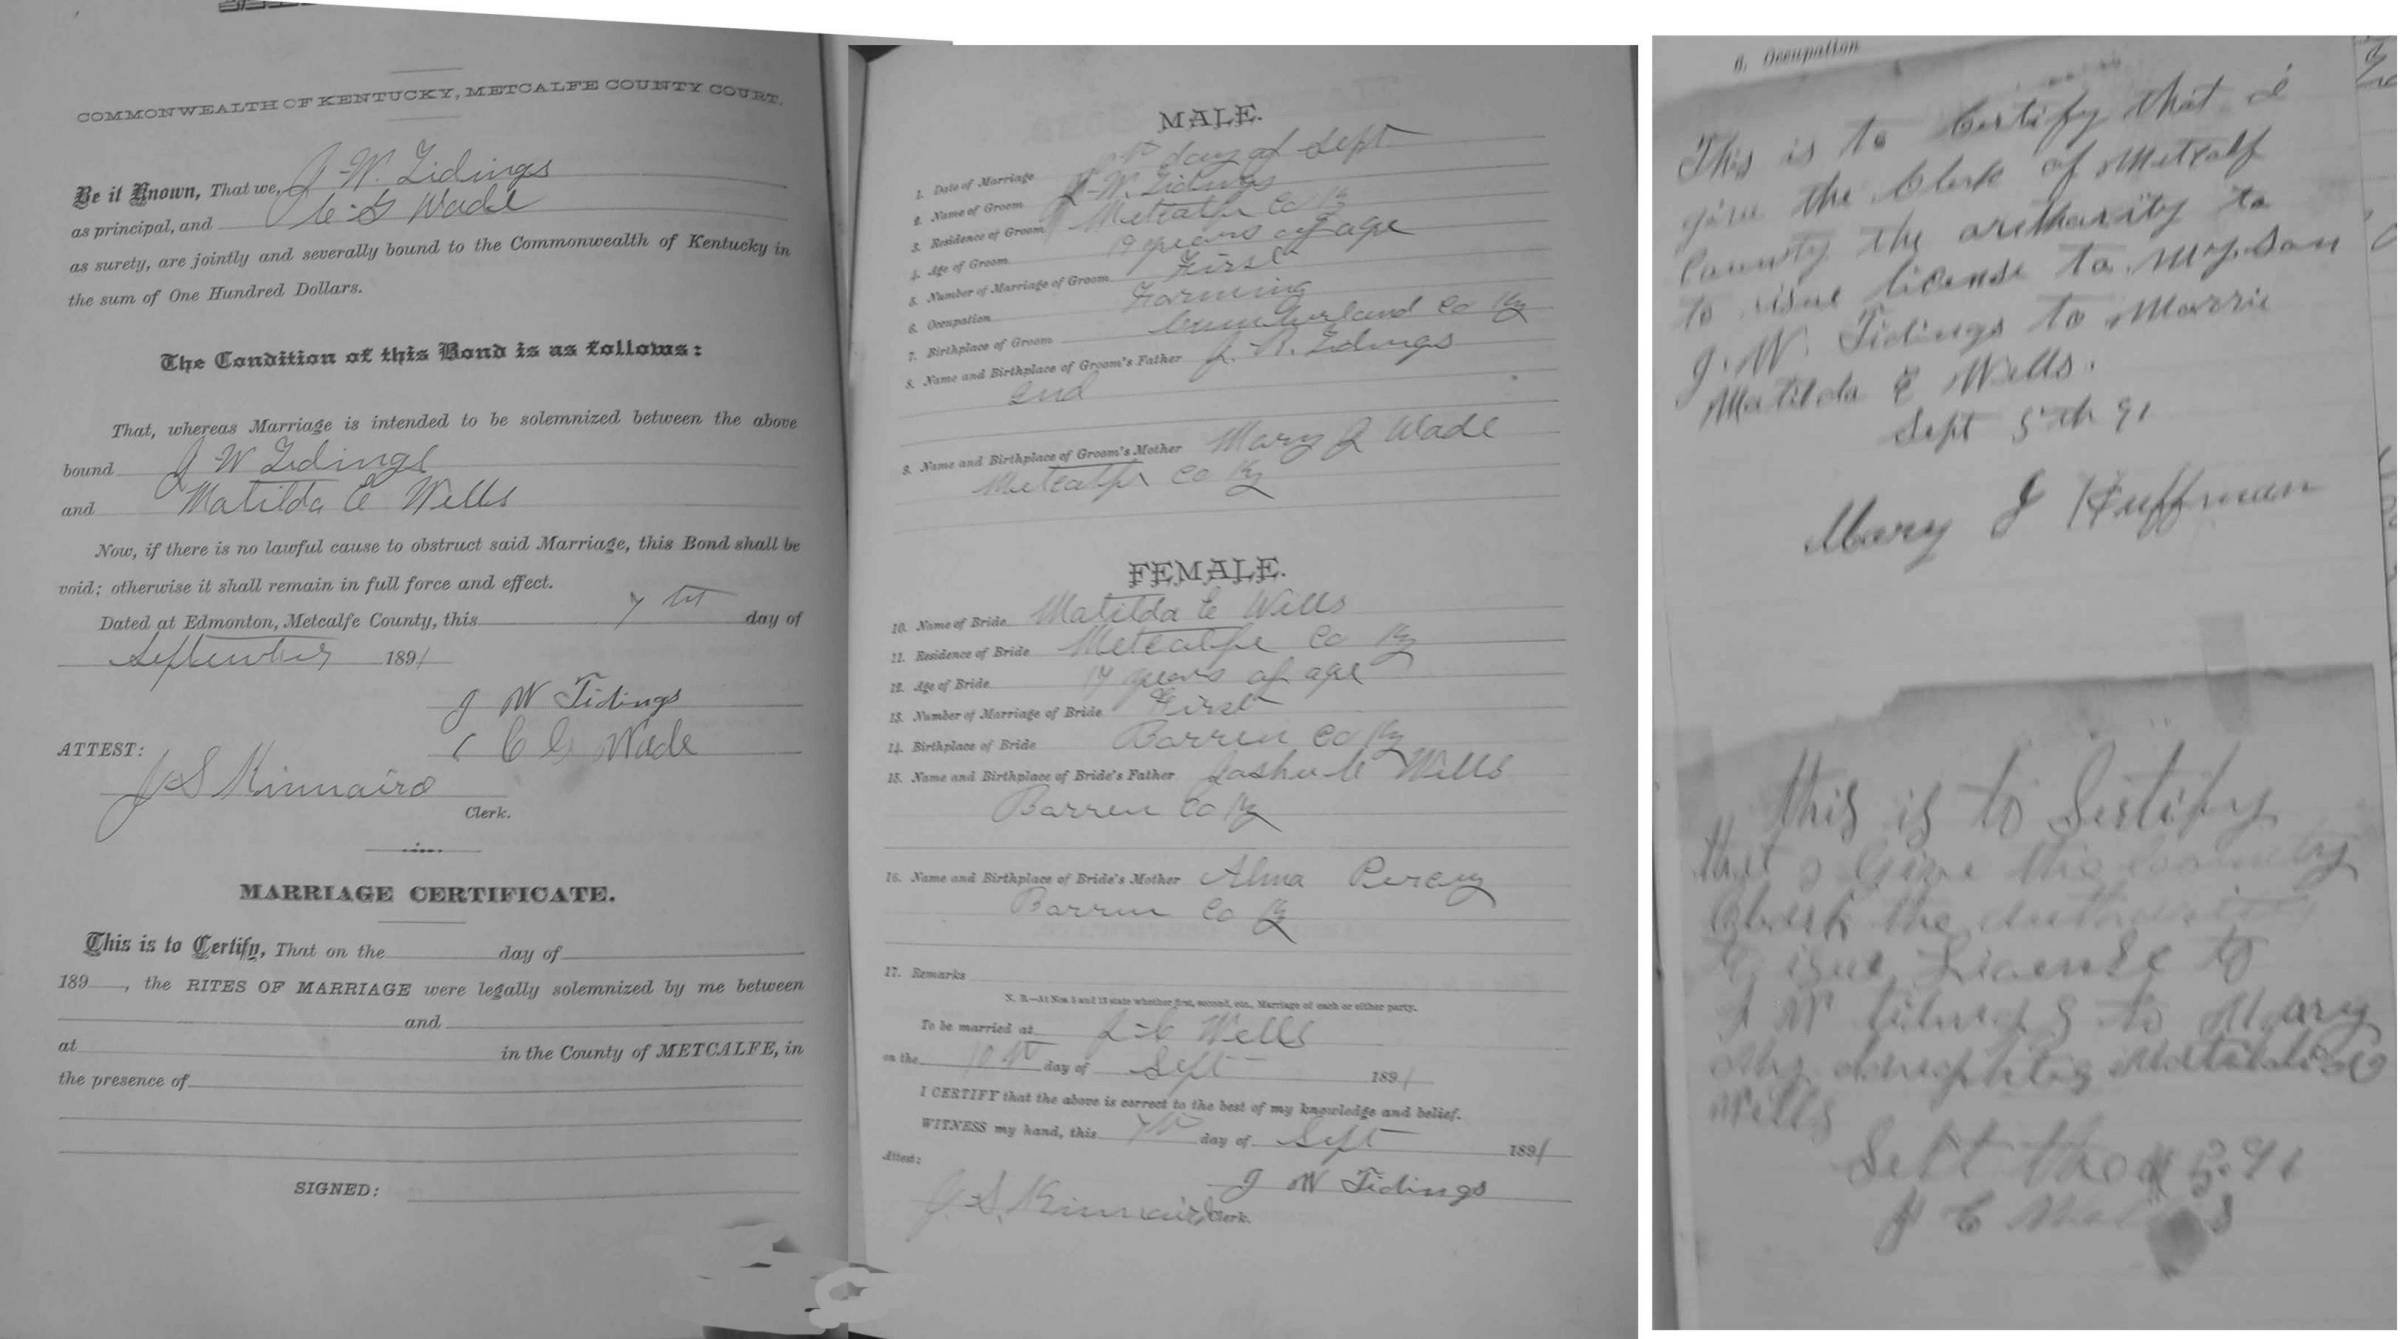 COMMONWEALTH OF KENTUCKY, METCALFE COUNTY COURT.
Be it Known, That we, J-W. Tidings
as principal, and C-G Wade
as surety, are jointly and severally bound to the Commonwealth of Kentucky in
the sum of One Hundred Dollars.
The Condition of this Bond is as follows:
That, whereas Marriage is intended to be solemnized between the above
bound J W Tidings
and Matilda E Wells
Now, if there is no lawful cause to obstruct said Marriage, this Bond shall be
void; otherwise it shall remain in full force and effect.
Dated at Edmonton, Metcalfe County, this 7th day of
September 1891
J W Tidings
C G Wade
ATTEST:
J-S Kinnaird
Clerk.
MARRIAGE CERTIFICATE.
This is to Certify, That on the day of
189 , the RITES OF MARRIAGE were legally solemnized by me between
and
at in the County of METCALFE, in
the presence of
SIGNED:
MALE.
1. Date of Marriage day of Sept
2. Name of Groom J-W. Tidings
3. Residence of Groom Metcalfe Co Ky
4. Age of Groom 19 years of age
5. Number of Marriage of Groom First
6. Occupation Farming
7. Birthplace of Groom Cumberland Co Ky
8. Name and Birthplace of Groom's Father J. R. Tidings
Ind
9. Name and Birthplace of Groom's Mother Mary J Wade
Metcalfe Co Ky
FEMALE.
10. Name of Bride Matilda E Wells
11. Residence of Bride Metcalfe Co Ky
12. Age of Bride years of age
13. Number of Marriage of Bride First
14. Birthplace of Bride Barren Co Ky
15. Name and Birthplace of Bride's Father Wells
Barren Co Ky
16. Name and Birthplace of Bride's Mother Alma Percy
Barren Co Ky
17. Remarks
N. B.—At Nos 5 and 13 state whether first, second, etc., Marriage of each or either party.
To be married at J-C Wells
on the 10th day of Sept 1891
I CERTIFY that the above is correct to the best of my knowledge and belief.
WITNESS my hand, this 7th day of Sept 1891
Attest: J W Tidings
J. S. Kinnaird Clerk.
6. Occupation
This is to Certify that I
give the Clerk of Metcalf
County the authority to
to issue license to My Son
J. W. Tidings to Marrie
Matilda E Wells.
Sept 5th 91
Mary J Huffman
this is to Sertify
that I Give the County
Clerk the
to isue License to
J W to Mary
My
Wells
Sept the 5. 91
J C